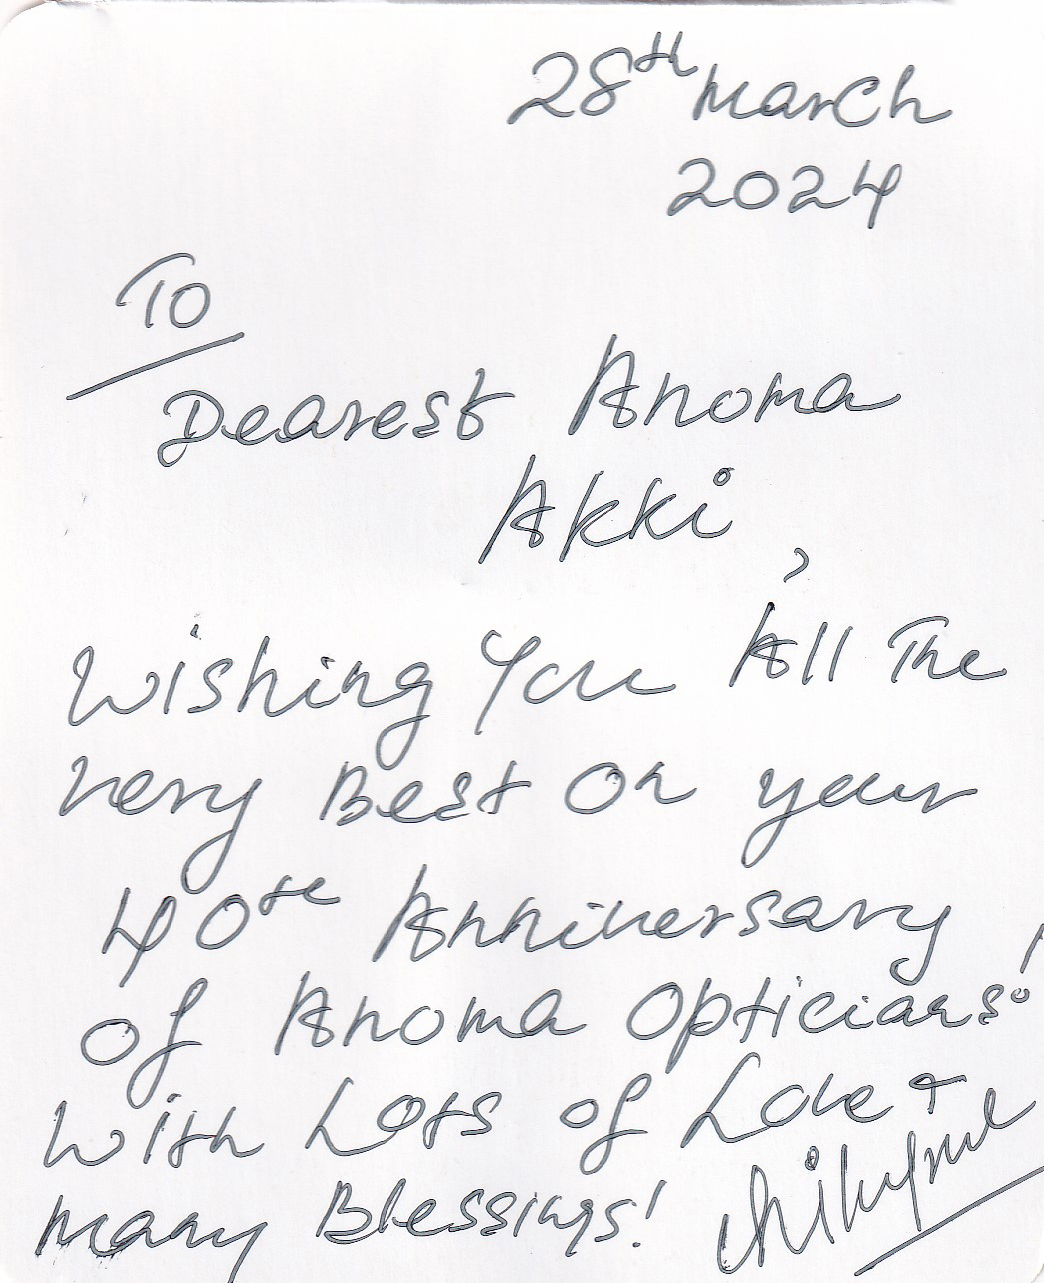 28th March
2024
To
Dearest Anoma
Akki,
Wishing You All The
very Best On your
40th Anniversary
of Anoma Opticians!
With Lots of Love +
many Blessings!